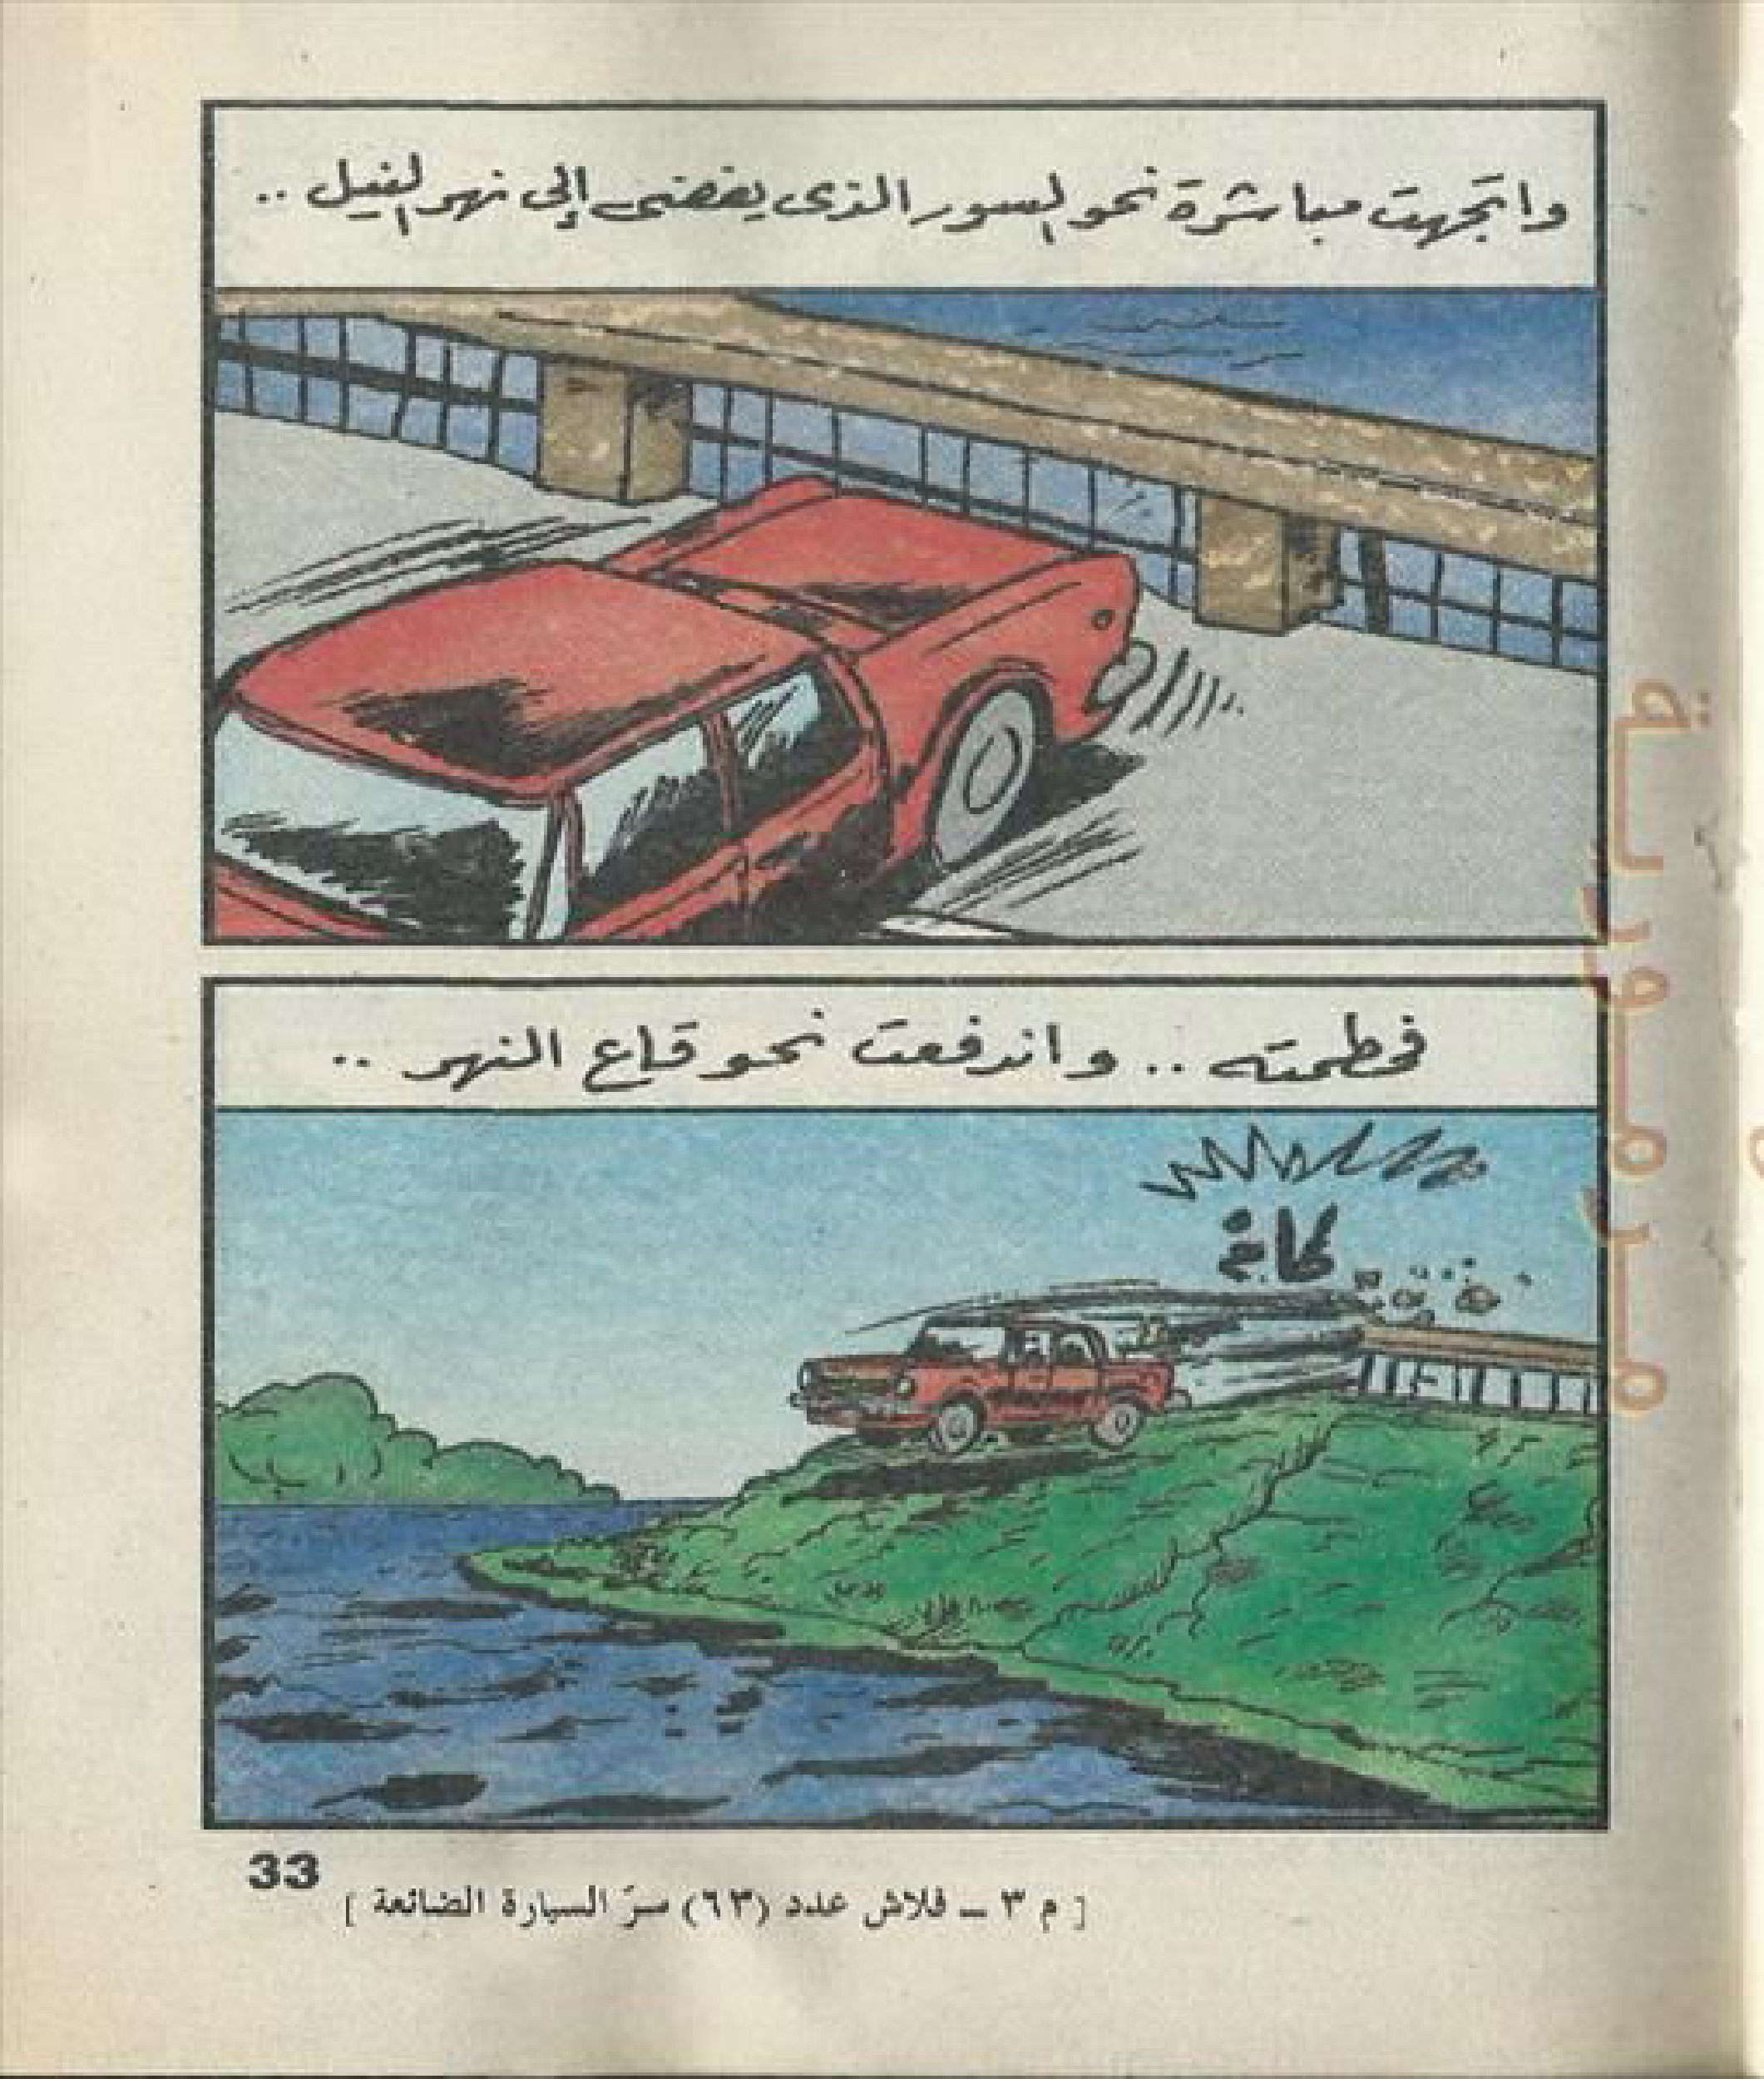 واتجهت مباشرة نحو السور الذى يفضى إلى نهر النيل ..
فحطمته .. واندفعت نحو قاع النهر ..
33
[ م ٣ ــ فلاش عدد (٦٣) سرّ السيارة الضائعة ]